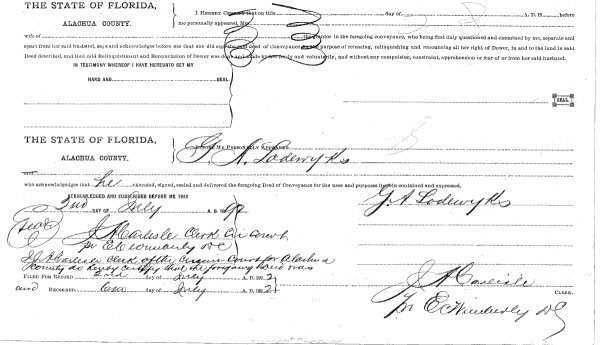 THE STATE OF FLORIDA,
ALACHUA COUNTY.
I HEREBY CERTIFY that on this day of A. D. 18 before
me personally appeared Mrs.
wife of the grantor in the foregoing conveyance, who being first duly questioned and examined by me, separate and
apart from her said husband, says and acknowledges before me that she did sign the said deed of Conveyance for the purpose of releasing, relinquishing and renouncing all her right of Dower, in and to the land in said
Deed described, and that said Relinquishment and Renunciation of Dower was done and made by her freely and voluntarily, and without any compulsion, constraint, apprehension or fear of or from her said husband.
IN TESTIMONY WHEREOF I HAVE HEREUNTO SET MY
HAND AND SEAL
SEAL
THE STATE OF FLORIDA,
ALACHUA COUNTY.
BEFORE ME PERSONALLY APPEARED
G. A. Lodewyks
who acknowledges that he executed, signed, sealed and delivered the foregoing Deed of Conveyance for the uses and purposes therein contained and expressed.
SUBSCRIBED AND BEFORE ME THIS
2nd DAY OF July A. D. 1892
G. A. Lodewyks
(Seal) J A Carlisle Clerk Cir court
Pr E C Wimberly DC
I J A Carlisle Clerk of the Circuit Court for Alachua
County do hereby certify that the foregoing Deed was
FILED FOR RECORD 2nd day of July A. D. 1892
and RECORDED day of July A. D. 1892
J A Carlisle
CLERK.
Pr E C Wimberly DC